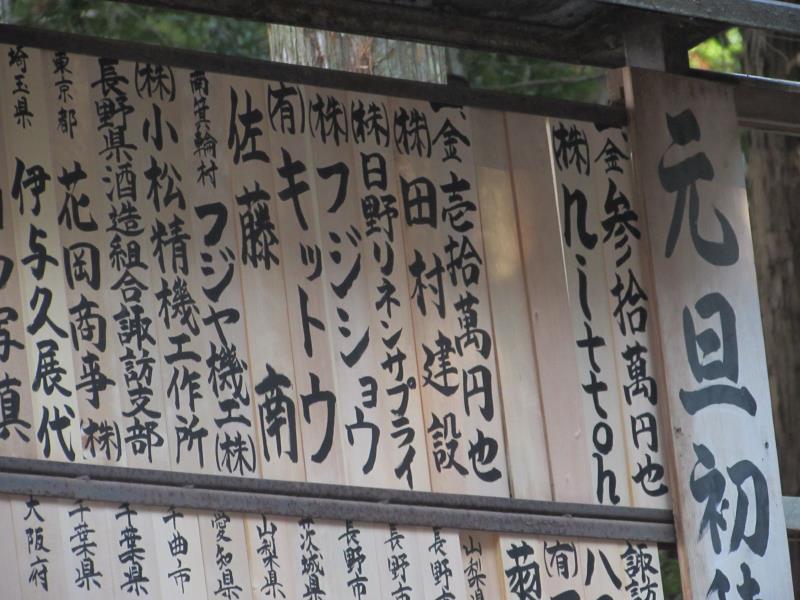 元旦初
一、金参拾萬円也
(株)nittoh
一、金壱拾萬円也
(株)田村建設
(株)日野リネンサプライ
(株)フジショウ
(有)キットウ
佐藤南
南箕輪村 フジヤ機工(株)
(株)小松精機工作所
長野県酒造組合諏訪支部
東京都 花岡商事(株)
埼玉県 伊与久展代
写真
諏訪
八
(有)
菊
山梨県
長野県
長野市
長野市
茨城県
山梨県
愛知県
千曲市
千葉県
千葉県
大阪府